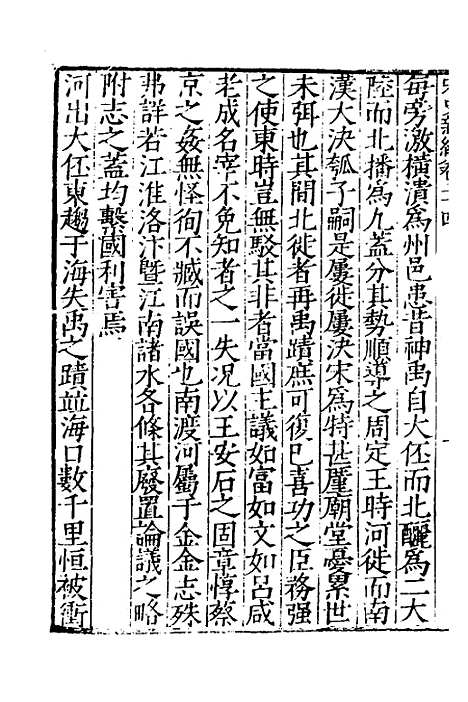 宋史新編卷二十四
每旁激橫潰爲州邑患昔神禹自大伾而北釃爲二大
陸而北播爲九蓋分其勢順導之周定王時河徙而南
漢大決瓠子嗣是屢徙屢決宋爲特甚廑廟堂憂累世
未弭也其間北徙者再禹蹟庶可復已喜功之臣務强
之使東時豈無駁其非者當國主議如富如文如呂咸
老成名宰不免知者之一失况以王安石之固章惇蔡
京之姦無怪徇不臧而誤國也南渡河屬于金金志殊
弗詳若江淮洛汴暨江南諸水各條其廢置論議之略
附志之蓋均繫國利害焉
河出大伾東趨于海失禹之蹟並海口數千里恒被衝